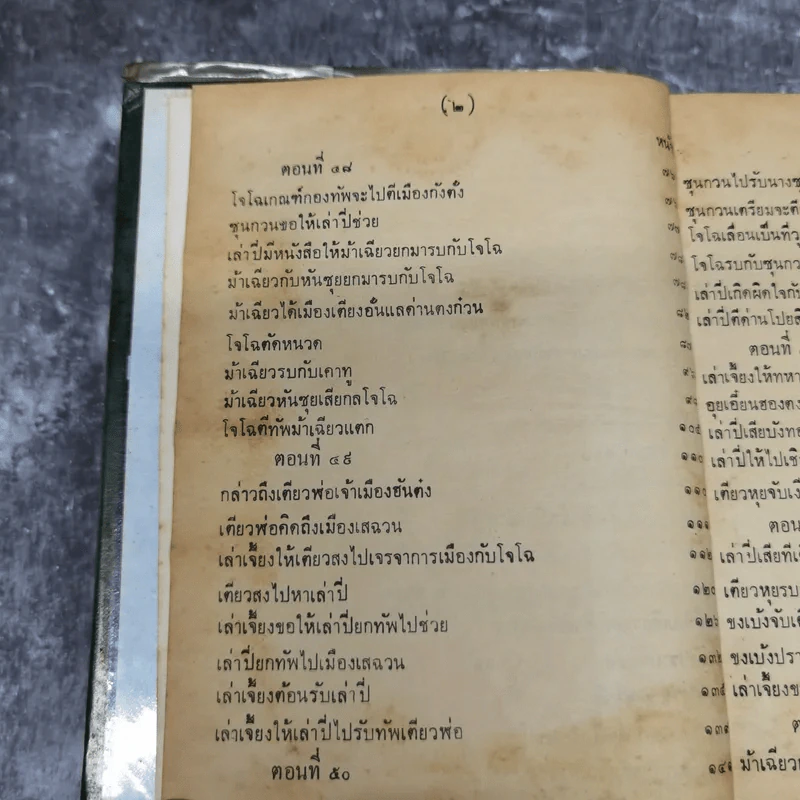 (๒)
หน้า
ตอนที่ ๔๘
โจโฉเกณฑ์กองทัพจะไปตีเมืองกังตั๋ง
ซุนกวนขอให้เล่าปี่ช่วย
เล่าปี่มีหนังสือให้ม้าเฉียวยกมารบกับโจโฉ
ม้าเฉียวกับหันซุยยกมารบกับโจโฉ
ม้าเฉียวได้เมืองเตียงอั๋นแลด่านตงก๋วน
โจโฉตัดหนวด
ม้าเฉียวรบกับเคาทู
ม้าเฉียวหันซุยเสียกลโจโฉ
โจโฉตีทัพม้าเฉียวแตก
ตอนที่ ๔๙
กล่าวถึงเตียวฬ่อเจ้าเมืองฮันต๋ง
เตียวฬ่อคิดถึงเมืองเสฉวน
เล่าเจี้ยงให้เตียวสงไปเจรจาการเมืองกับโจโฉ
เตียวสงไปหาเล่าปี่
เล่าเจี้ยงขอให้เล่าปี่ยกทัพไปช่วย
เล่าปี่ยกทัพไปเมืองเสฉวน
เล่าเจี้ยงต้อนรับเล่าปี่
เล่าเจี้ยงให้เล่าปี่ไปรับทัพเตียวฬ่อ
ตอนที่ ๕๐
ซุนกวนไปรับนาง
ซุนกวนเตรียมจะ
โจโฉเลื่อนเป็นที่
โจโฉรบกับซุนกว
เล่าปี่เกิดผิดใจกั
เล่าปี่ตีด่านโปยสิ
ตอนที่
๑๐๕
๑๑๐
๑๒๐
เล่าเจี้ยงให้ทหา
อุยเอี๋ยนฮองตง
เล่าปี่เสียบังทอ
เล่าปี่ให้ไปเชิ
เตียวหุยจับเงี
ตอน
เล่าปี่เสียที
เตียวหุยรบ
ขงเบ้งจับเตี
ขงเบ้งปรา
เล่าเจี้ยงข
ม้าเฉียว